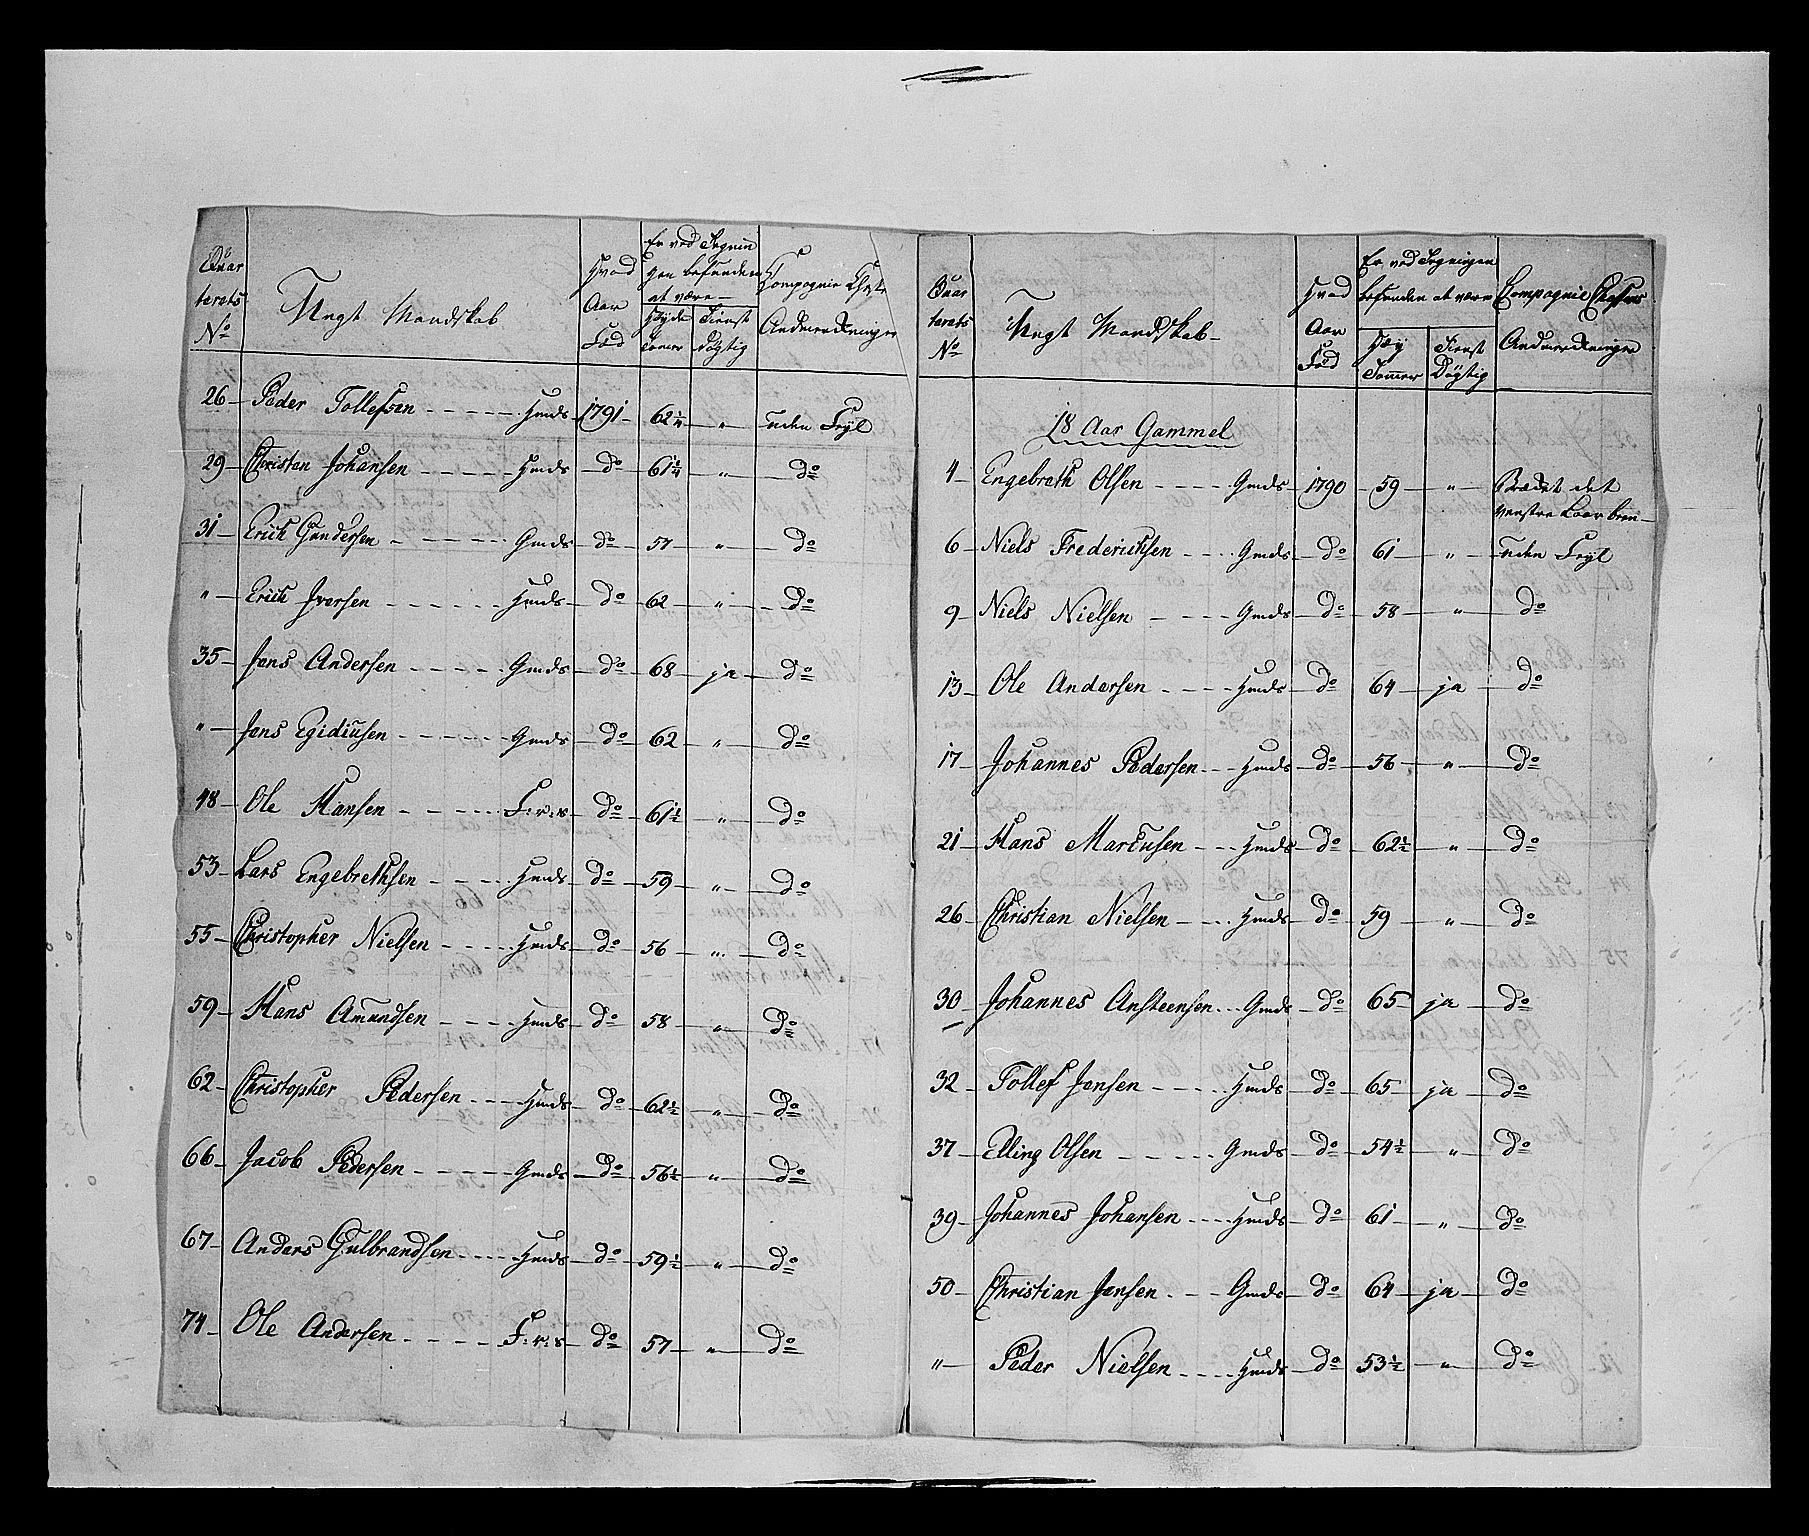 Quar
terets
No
Ungt Mandskab
Hvad
Aar
Fød
Er ved Segnin
gen befunden
at være
Høyde
Tomer
Tienst
Døgtig
Compagnie Chefs
Anmerkninger
26 Peder Tollefsen Hmds 1791 62¼ " uden Feyl
29 Christen Johansen Hmds do 61¼ " do
31 Erich Gundersen Gmds do 57 " do
" Erich Iversen Hmds do 62 " do
35 Jens Andersen Gmds do 68 ja do
" Jens Egidiusen Gmds do 62 " do
48 Ole Hansen F:r:s do 61½ " do
53 Lars Engebrethsen Hmds do 59 " do
55 Christopher Nielsen Hmds do 56 " do
59 Hans Amundsen Hmds do 58 " do
62 Christopher Pedersen Hmds do 62½ " do
66 Jacob Pedersen Gmds do 56½ " do
67 Anders Gulbrandsen Hmds do 59½ " do
74 Ole Andersen F:r:s do 57 " do
Quar
terets
No
Ungt Mandskab
Hvad
Aar
Fød
Er ved Segningen
befunden at være
Høy
Tommer
Tienst
Døgtig
Compagnie Chefens
Anmerkninger
18 Aar Gammel
4 Engebreth Olsen Gmds 1790 59 " Brædet det
venstre Laar been
6 Niels Frederichsen Gmds do 61 " uden Feyl
9 Niels Nielsen Gmds do 58 " do
13 Ole Andersen Hmds do 64 ja do
17 Johannes Pedersen Hmds do 56 " do
21 Hans Marcusen Hmds do 62½ " do
26 Christian Nielsen Hmds do 59 " do
30 Johannes Ansteensen Gmds do 65 ja do
32 Tollef Jensen Hmds do 65 ja do
37 Elling Olsen Gmds do 54½ " do
39 Johannes Johansen Hmds do 61 " do
50 Christian Jensen Gmds do 64 ja do
" Peder Nielsen Hmds do 53½ " do